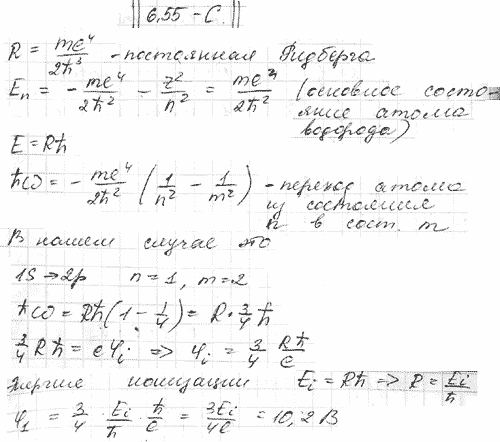 6,55 - С.
R = me⁴/2ħ³ - постоянная Ридберга
Eₙ = - me⁴/2ħ² - z²/n² = me⁴/2ħ² (основное состо-
яние атома
водорода)
E = Rħ
ħω = - me⁴/2ħ² (1/n² - 1/m²) - переход атома
из состояния
n в сост. m
В нашем случае это
1S → 2p n = 1, m = 2
ħω = Rħ(1 - 1/4) = R · 3/4 ħ
3/4 Rħ = eφᵢ => φᵢ = 3/4 Rħ/e
Энергия ионизации Eᵢ = Rħ => R = Eᵢ/ħ
φ₁ = 3/4 · Eᵢ/ħ · ħ/e = 3Eᵢ/4e = 10,2 В